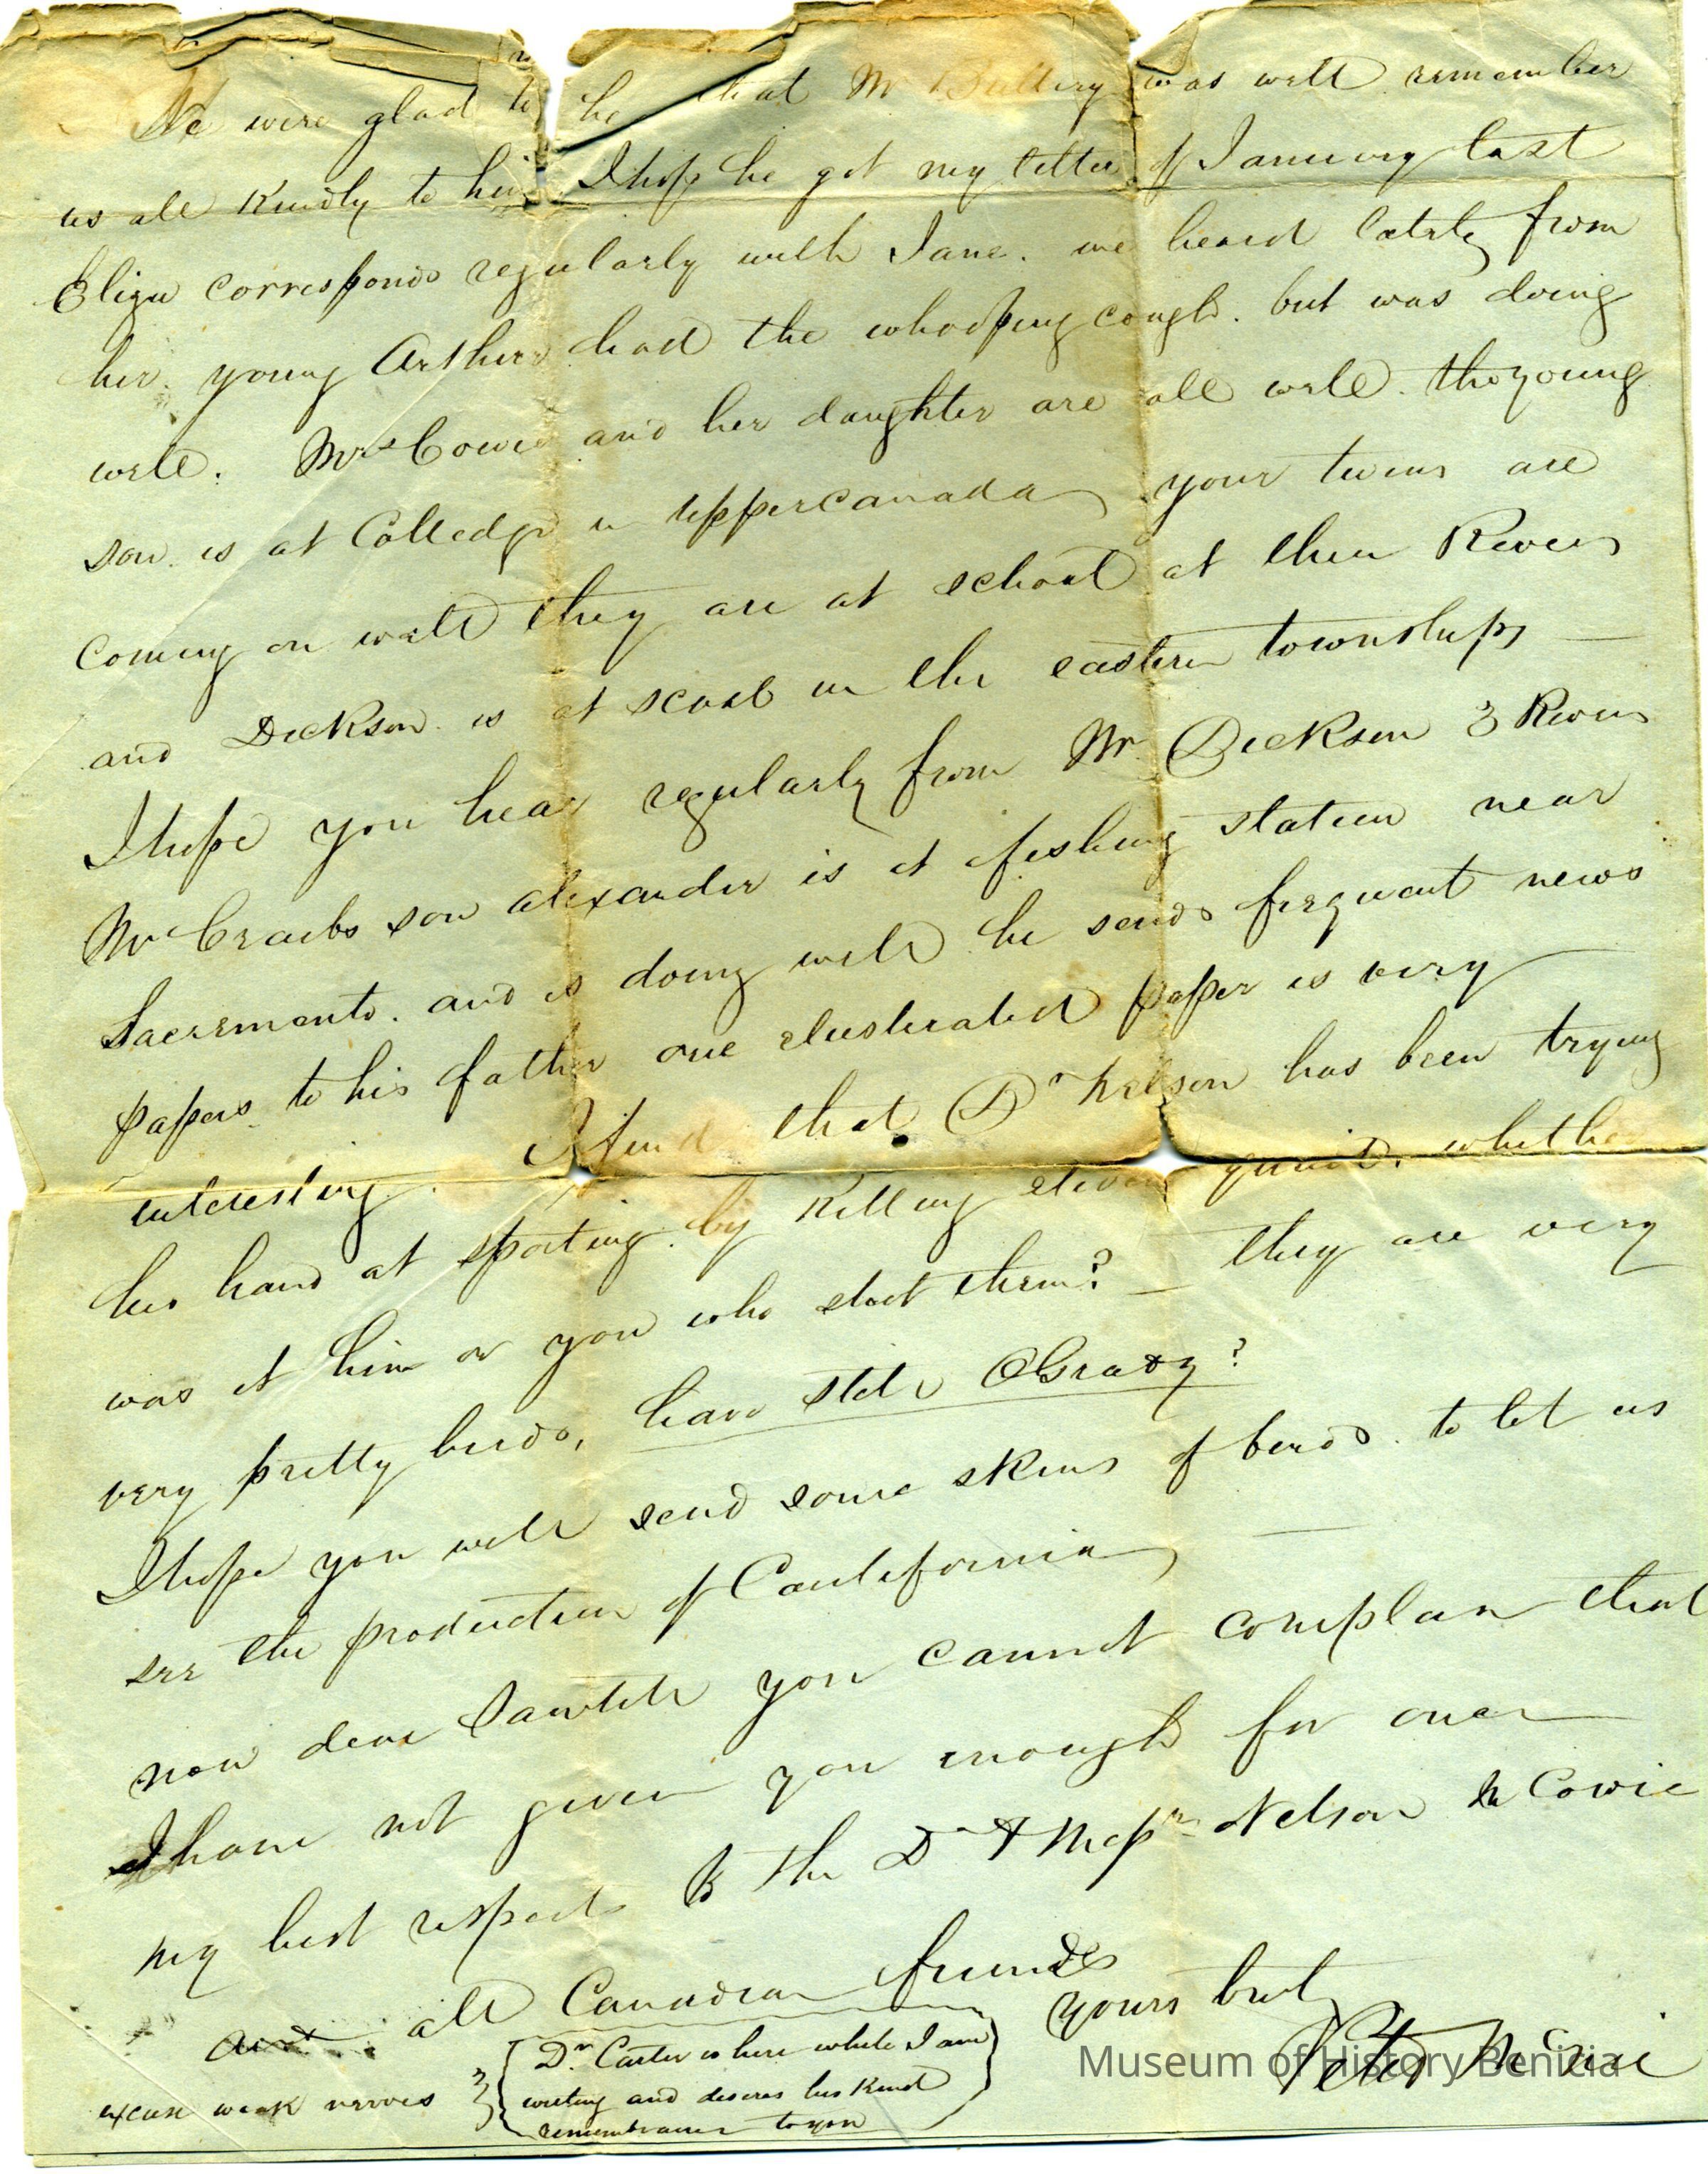 We were glad to he that Mr was well remember
us all Kindly to him I hope he got my letter of January last
Eliza corresponds regularly with Jane. we heard lately from
her. young Arthur had the whooping cough. but was doing
well. Mrs Cowie and her daughter are all well. the young
son. is at Colledge in uppercanada your twins are
coming on well they are at school at three Rivers
and Dickson. is at scool in the eastern townships —
I hope you hear regularly from Mr Dickson 3 Rivers
Mr Craibs son alexander is at a fishing station near
Sacremento. and is doing well he sends frequent news
papers to his father one elustrated paper is very
interesting. I find that Dr Nelson has been trying
his hand at sporting. by Killing eleven whether
was it him or you who shot them? — they are very
very pretty birds, have still
I hope you will send some skins of birds. to let us
see the production of Caulifornia
now dear you cannot complain that
I have not given you enough for once
my best respects to the Dr & Messrs Nelson & Cowie
and all Canadian friends
yours truly
Peter
excuse weak nerves
Dr. Carter is here while I am
writing and desires his Kind
remembrance to you
Museum of History Benicia